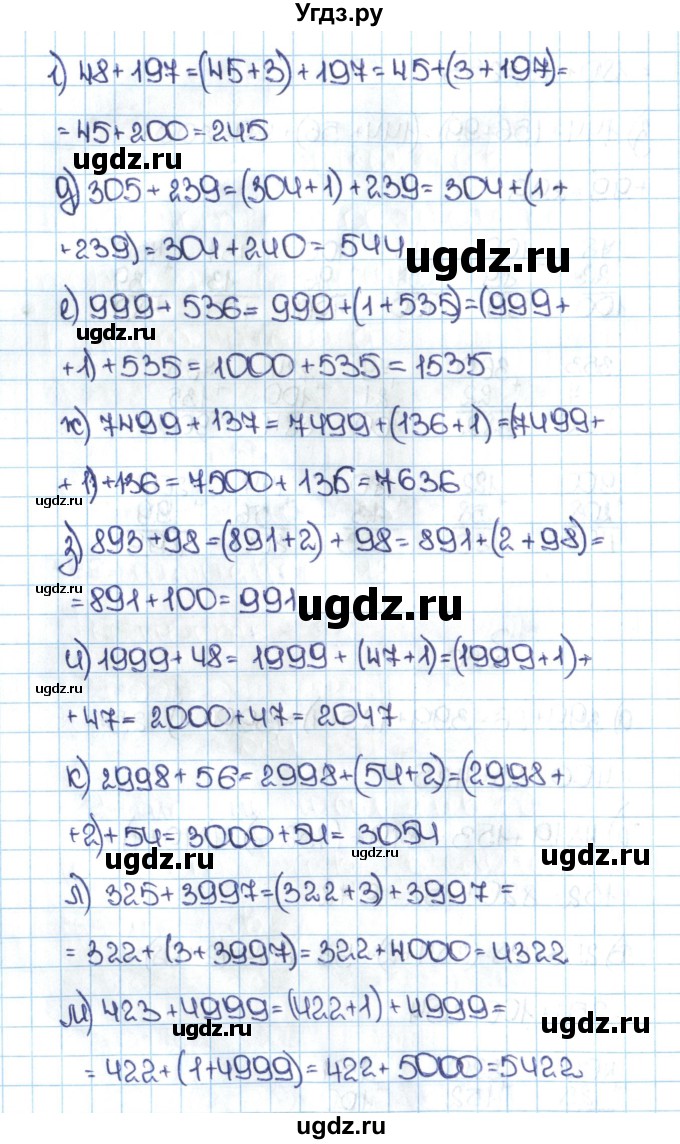 Угдз.ру
г) 48 + 197 = (45+3) + 197 = 45+(3+197)=
= 45+200 = 245
ugdz.ru
д) 305 + 239 = (304+1) + 239 = 304+(1+
+239) = 304 + 240 = 544
ugdz.ru
е) 999 + 536 = 999 + (1+535) = (999+
ugdz.ru
+1) + 535 = 1000 + 535 = 1535
ж) 7499 + 137 = 7499 + (136+1) = (7499+
+1)+136 = 7500 + 136 = 7636
ugdz.ru
з) 893 + 98 = (891+2) + 98 = 891+(2+98) =
ugdz.ru
= 891+100 = 991
ugdz.ru
и) 1999 + 48 = 1999 + (47+1) = (1999+1) +
ugdz.ru
+47 = 2000+47 = 2047
к) 2998 + 56 = 2998 + (54+2) = (2998+
+2)+54 = 3000 + 54 = 3054
ugdz.ru
ugdz.ru
ugdz.ru
л) 325 + 3997 = (322+3) + 3997 =
= 322 + (3+3997) = 322 + 4000 = 4322
м) 423 + 4999 = (422+1) + 4999 =
ugdz.ru
ugdz.ru
= 422 + (1+4999) = 422 + 5000 = 5422
ugdz.ru